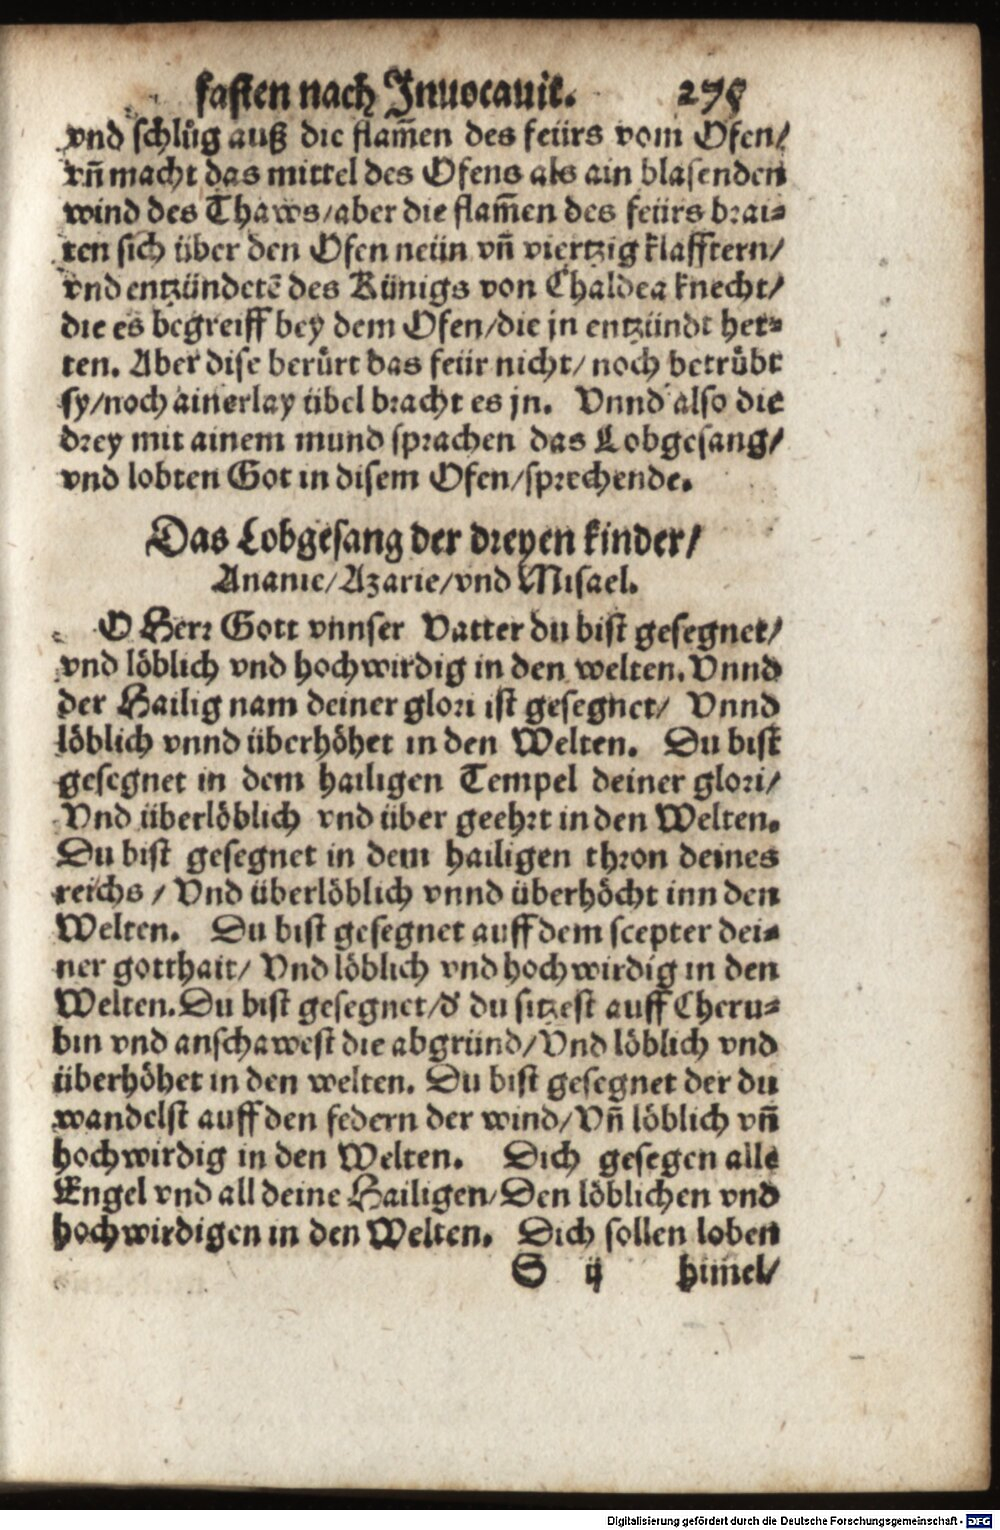 fasten nach Inuocauit. 275
vnd schlůg auß die flam̄en des feürs vom Ofen/
vn̄ macht das mittel des Ofens als ain blasenden
wind des Thaws/aber die flam̄en des feürs brai⸗
ten sich über den Ofen neün vn̄ viertzig klafftern/
vnd entzündetē des Künigs von Chaldea knecht/
die es begreiff bey dem Ofen/die jn entzündt het⸗
ten. Aber dise berůrt das feür nicht/ noch betrůbt
sy/noch ainerlay übel bracht es jn. Vnnd also die
drey mit ainem mund sprachen das Lobgesang/
vnd lobten Got in disem Ofen/sprechende.
Das Lobgesang der dreyen kinder/
Ananie/Azarie/vnd Misael.
O Herr Gott vnnser Vatter du bist gesegnet/
vnd löblich vnd hochwirdig in den welten. Vnnd
der Hailig nam deiner glori ist gesegnet/ Vnnd
löblich vnnd überhöhet in den Welten. Du bist
gesegnet in dem hailigen Tempel deiner glori/
Vnd überlöblich vnd über geehrt in den Welten.
Du bist gesegnet in dem hailigen thron deines
reichs / Vnd überlöblich vnnd überhöcht inn den
Welten. Du bist gesegnet auff dem scepter dei⸗
ner gotthait/ Vnd löblich vnd hochwirdig in den
Welten. Du bist gesegnet/d' du sitzest auff Cheru⸗
bin vnd anschawest die abgründ/Vnd löblich vnd
überhöhet in den welten. Du bist gesegnet der du
wandelst auff den federn der wind/Vn̄ löblich vn̄
hochwirdig in den Welten. Dich gesegen alle
Engel vnd all deine Hailigen/Den löblichen vnd
hochwirdigen in den Welten. Dich sollen loben
S ij him̄el/
Digitalisierung gefördert durch die Deutsche Forschungsgemeinschaft - DFG